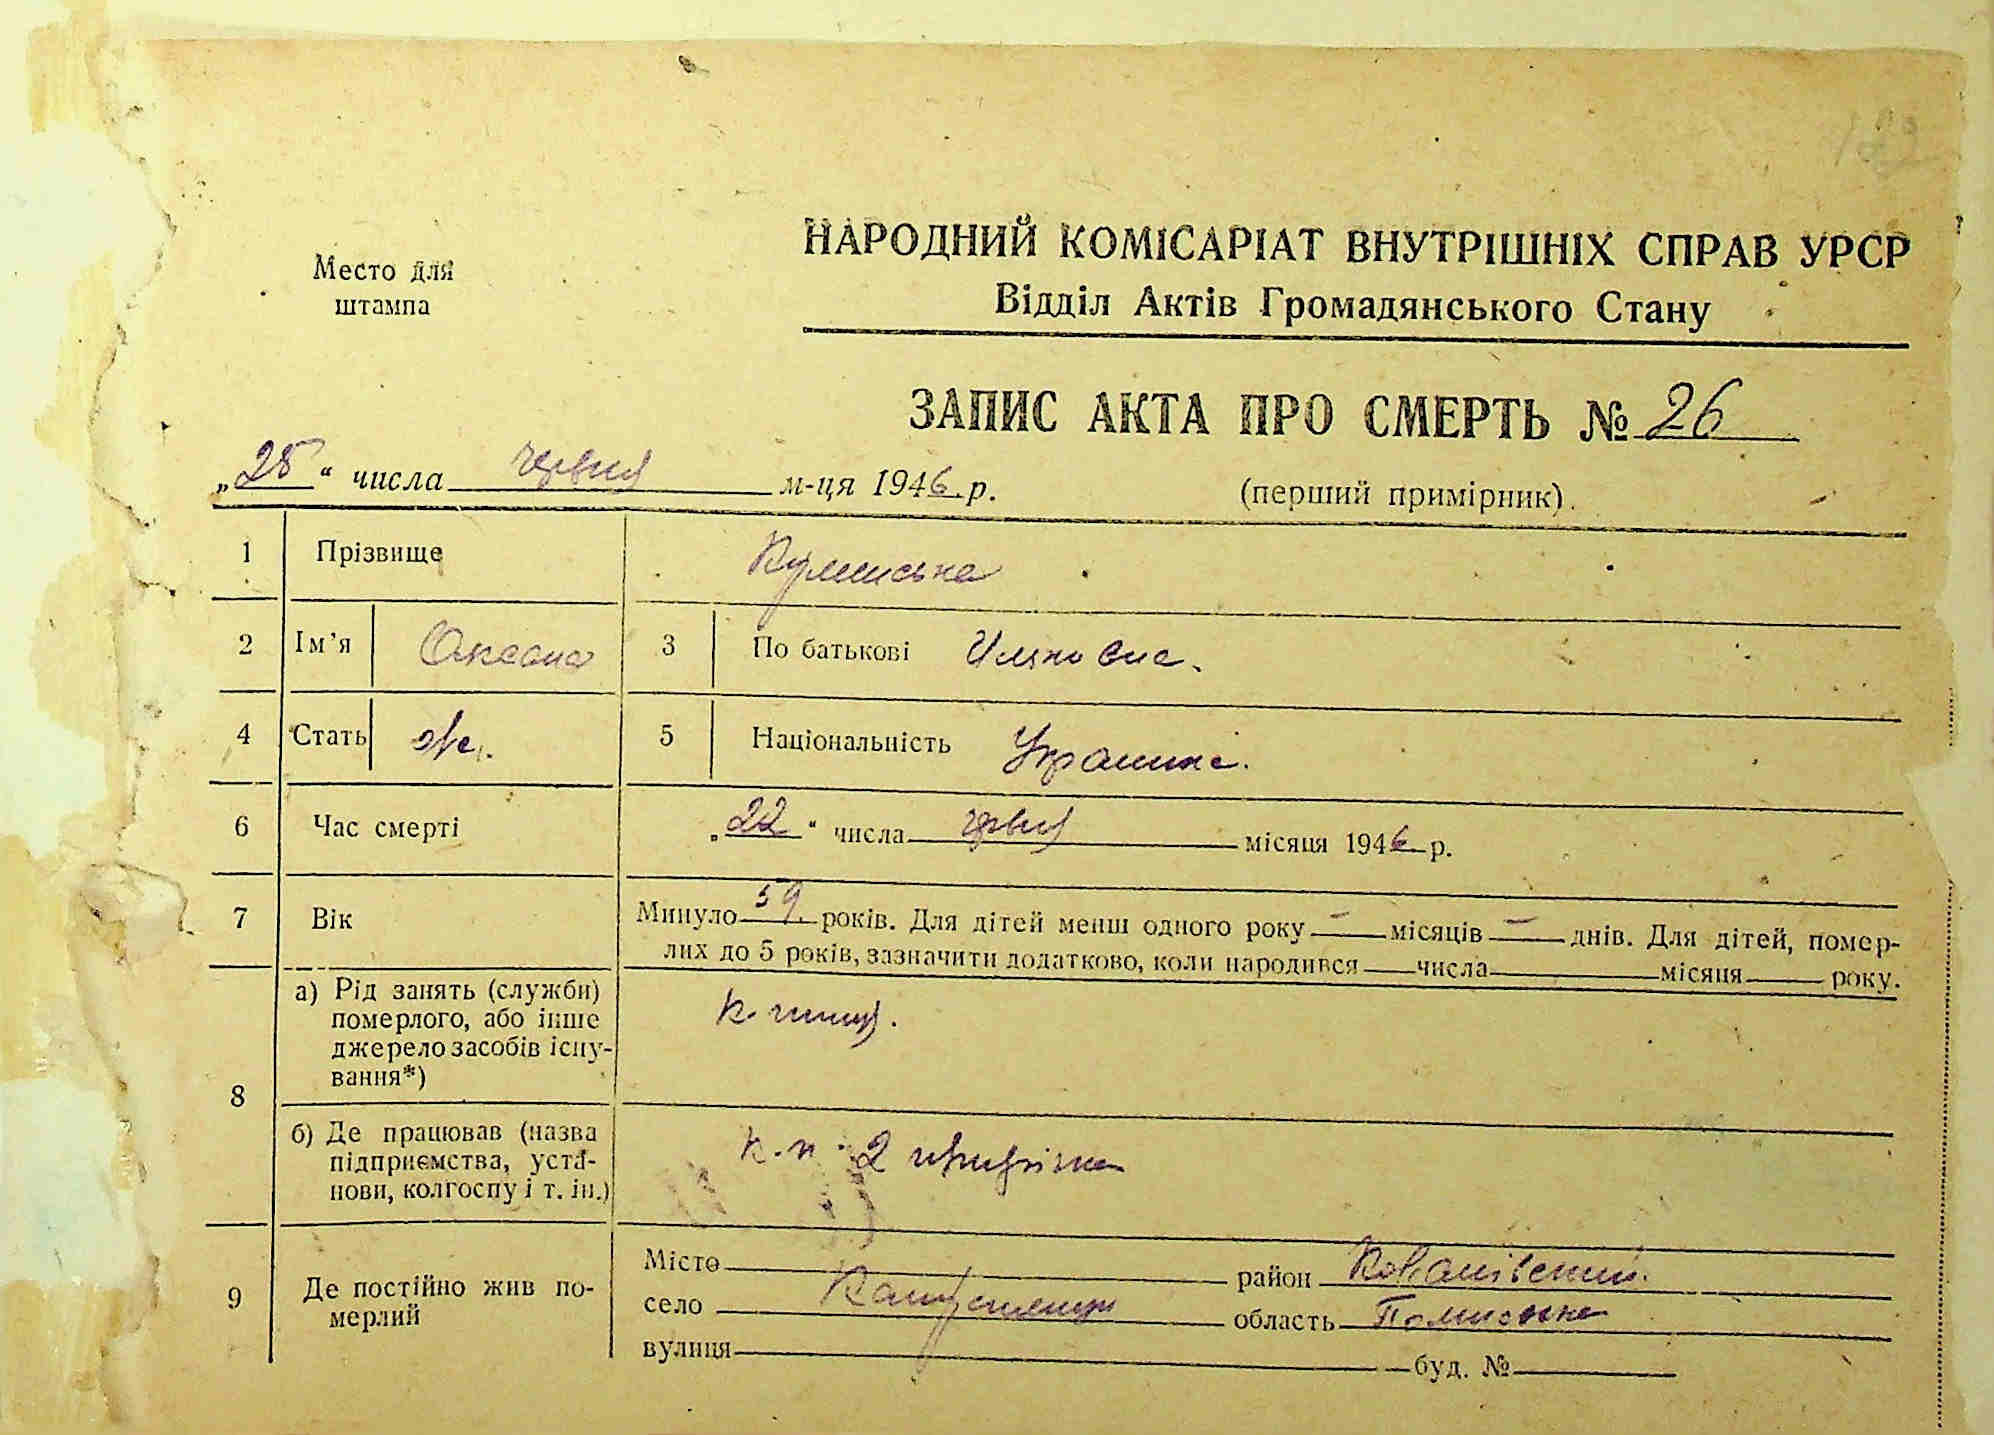 Место для
штампа
НАРОДНИЙ КОМІСАРІАТ ВНУТРІШНІХ СПРАВ УРСР
Відділ Актів Громадянського Стану
ЗАПИС АКТА ПРО СМЕРТЬ № 26
„25“ числа червня м-ця 1946 р.
(перший примірник).
1 Прізвище
2 Ім'я Оксана 3 По батькові
4 Стать ж. 5 Національність Українка.
6 Час смерті „22“ числа червня місяця 1946 р.
7 Вік Минуло 59 років. Для дітей менш одного року — місяців — днів. Для дітей, помер-
лих до 5 років, зазначити додатково, коли народився числа місяця року.
8 а) Рід занять (служби)
померлого, або інше
джерело засобів існу-
вання*)
б) Де працював (назва
підприємства, уста-
нови, колгоспу і т. ін.)
к-п 2
9 Де постійно жив по-
мерлий
Місто район
село Капустинци область Полтавська
вулиця буд. №